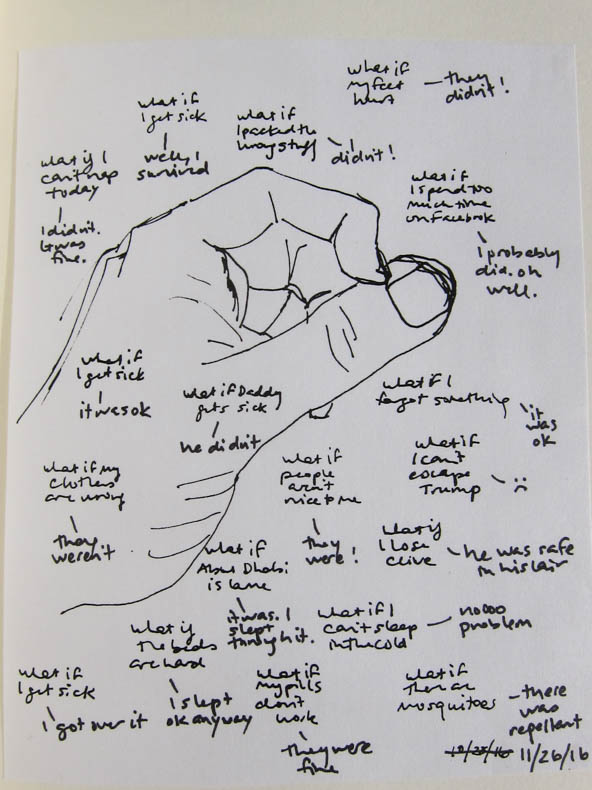 what if
my feet
hurt
they
didn't!
what if
I get sick
well, I
survived
what if
I packed the
wrong stuff
didn't!
what if I
can't nap
today
I didn't.
It was
fine.
what if
I spend too
much time
on Facebook
I probably
did. oh
well.
what if
I get sick
it was ok
what if Daddy
gets sick
he didn't
what if I
forgot something
it
was
ok
what if my
clothes
are wrong
they
weren't
what if
people
aren't
nice to me
they
were!
what if
I can't
escape
Trump
:(
what if
I lose
Clive
he was safe
in his lair
what if
Abu Dhabi
is lame
it was. I
slept
through it.
what if I
can't sleep
in the cold
nooo
problem
what if
the beds
are hard
I slept
ok anyway
what if
I get sick
I got over it
what if
my pills
don't
work
they were
fine
what if
there are
mosquitoes
there
was
repellant
11/26/16